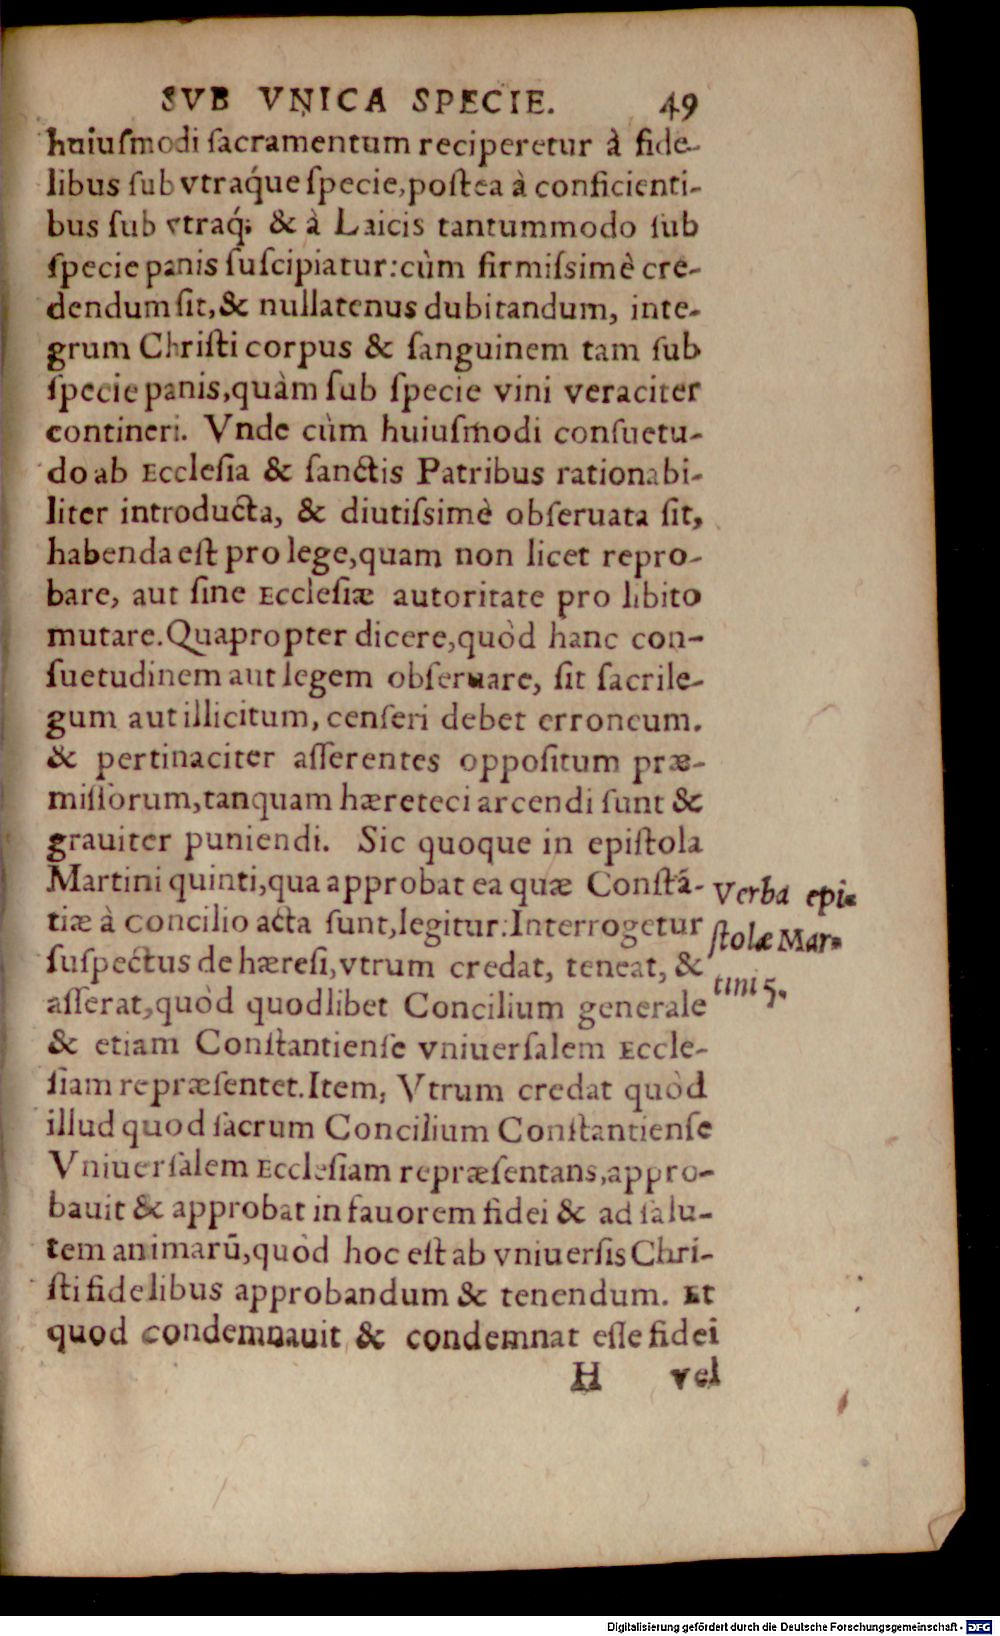 SVB VNICA SPECIE. 49
huiuſmodi ſacramentum reciperetur à fide-
libus ſub vtraq́ue ſpecie, poſtea à conficienti-
bus ſub vtraq́; & à Laicis tantummodo ſub
ſpecie panis ſuſcipiatur: cùm firmiſsimè cre-
dendum ſit, & nullatenus dubitandum, inte-
grum Chriſti corpus & ſanguinem tam ſub
ſpecie panis, quàm ſub ſpecie vini veraciter
contineri. Vnde cùm huiuſmodi conſuetu-
do ab Eccleſia & ſanctis Patribus rationabi-
liter introducta, & diutiſsimè obſeruata ſit,
habenda eſt pro lege, quam non licet repro-
bare, aut ſine Eccleſiæ autoritate pro libito
mutare. Quapropter dicere, quòd hanc con-
ſuetudinem aut legem obſeruare, ſit ſacrile-
gum aut illicitum, cenſeri debet erroneum.
& pertinaciter aſſerentes oppoſitum præ-
miſſorum, tanquam hæreteci arcendi ſunt &
grauiter puniendi. Sic quoque in epiſtola
Martini quinti, qua approbat ea quæ Conſtã-
tiæ à concilio acta ſunt, legitur: Interrogetur
ſuſpectus de hæreſi, vtrum credat, teneat, &
aſſerat, quòd quodlibet Concilium generale
& etiam Conſtantienſe vniuerſalem Eccle-
ſiam repræſentet. Item, Vtrum credat quòd
illud quod ſacrum Concilium Conſtantienſe
Vniuerſalem Eccleſiam repræſentans, appro-
bauit & approbat in fauorem fidei & ad ſalu-
tem animarũ, quòd hoc eſt ab vniuerſis Chri-
ſti fidelibus approbandum & tenendum. Et
quod condemnauit & condemnat eſſe fidei
H vel
Verba epi-
ſtolæ Mar-
tini 5.
Digitalisierung gefördert durch die Deutsche Forschungsgemeinschaft - DFG